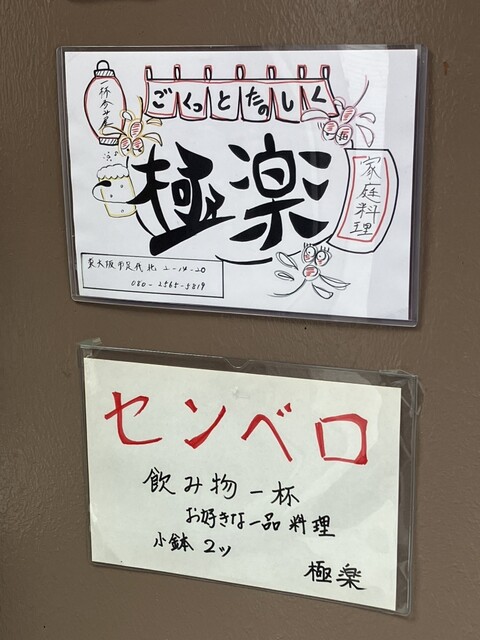 ごくっとたのしく
極楽
家庭料理
東大阪市足代北2-14-20
080-2565-5819
センベロ
飲み物一杯
お好きな一品料理
小鉢2ッ
極楽